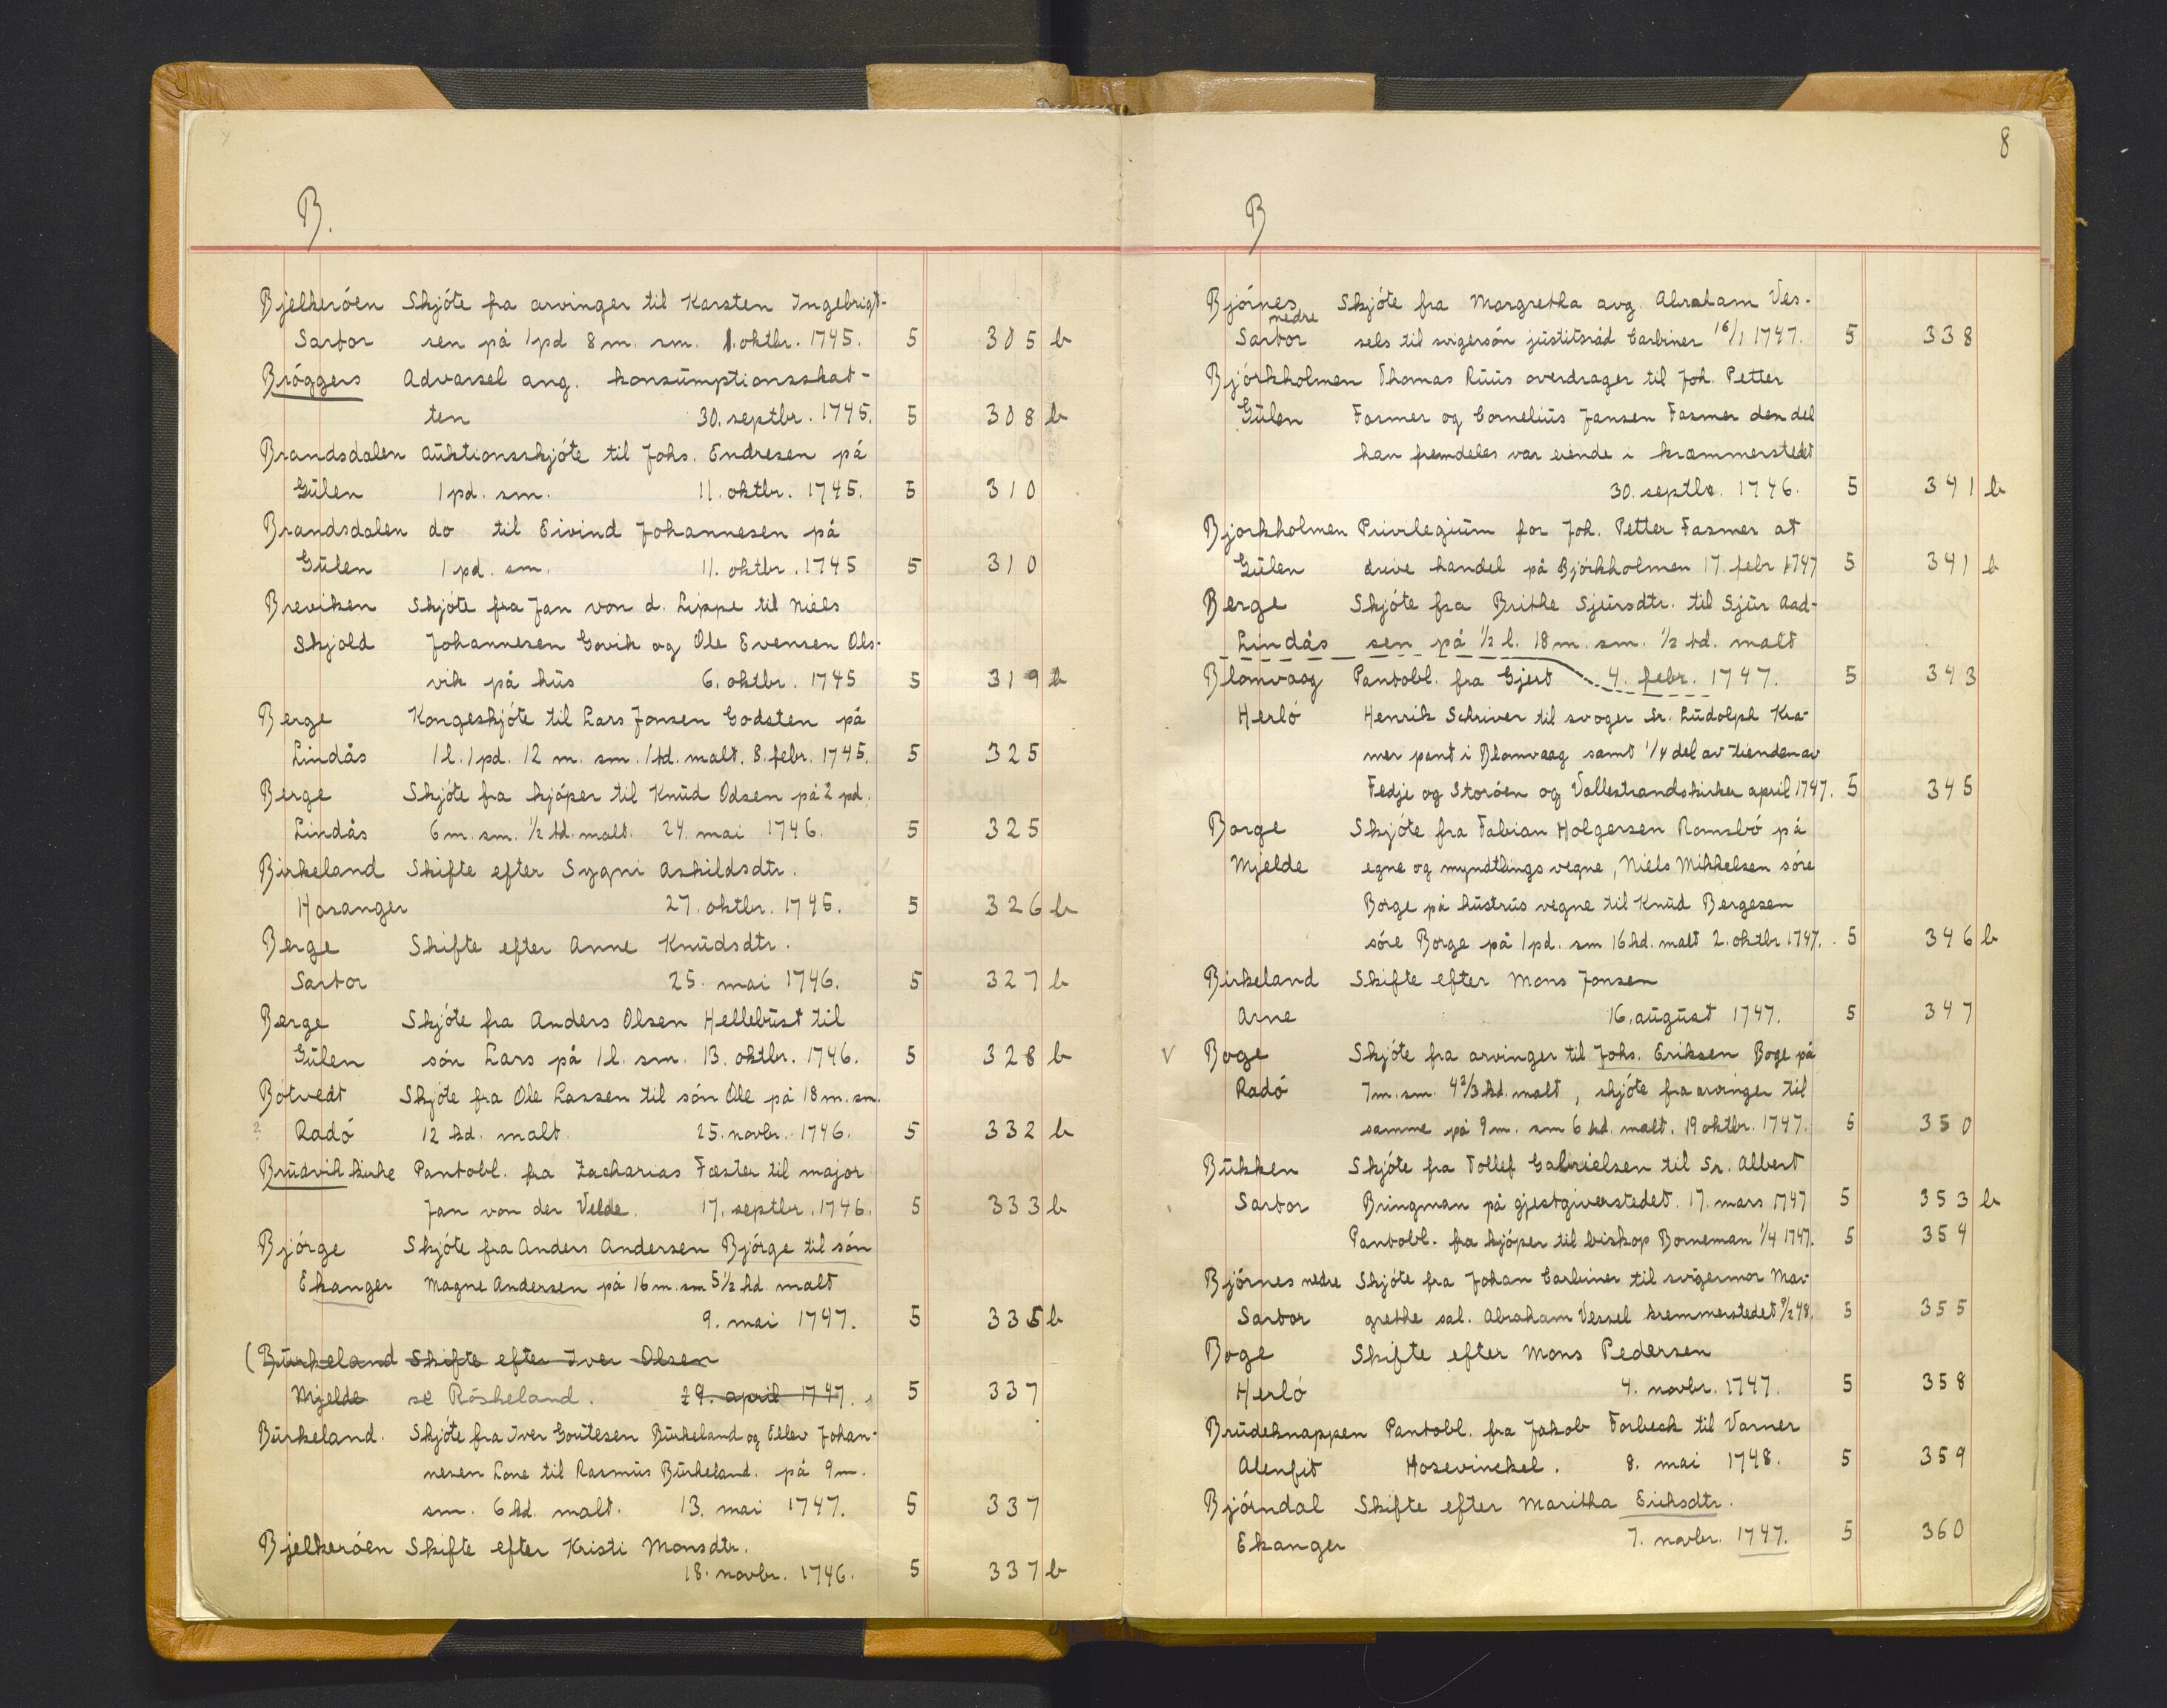 B.
Bjelkeróen Skjóte fra arvinger til Karsten Ingebrigt-
Sartor sen på 1 pd 8 m. sm. 1. oktbr. 1745. 5 305 b
Bróggers Advarsel ang. konsumptionsskat-
ten 30. septbr. 1745. 5 308 b
Brandsdalen auktionsskjóte til Johs. Endresen på
Gülen 1 pd. sm. 11. oktbr. 1745. 5 310
Brandsdalen do til Eivind Johannesen på
Gülen 1 pd. sm. 11. oktbr. 1745 5 310
Breviken Skjóte fra Jan von d. Lippe til Niels
Skjold Johannesen Govik og Ole Evensen Ols-
vik på hüs 6. oktbr. 1745 5 319 b
Berge Kongeskjóte til Lars Jonsen Godsten på
Lindås 1 l. 1 pd. 12 m. sm. 1 td. malt. 8. febr. 1745. 5 325
Berge Skjóte fra kjóper til Knüd Odsen på 2 pd.
Lindås 6 m. sm. ½ td. malt. 24. mai 1746. 5 325
Birkeland Skifte efter Sygni Askildsdtr.
Hosanger 27. oktbr. 1745. 5 326 b
Berge Skifte efter Anne Knüdsdtr.
Sartor 25. mai 1746. 5 327 b
Berge Skjóte fra Anders Olsen Hellebüst til
Gülen són Lars på 1 l. sm. 13. oktbr. 1746. 5 328 b
Bótvedt Skjóte fra Ole Lassen til són Ole på 18 m. sm.
? Radó 12 kd. malt. 25. novbr. 1746. 5 332 b
Brüdvik kirke Pantobl. fra Zacharias Fæster til major
Jan von der Velde. 17. septbr. 1746. 5 333 b
Bjórge Skjóte fra Anders Andersen Bjórge til són
Ekanger Magne Andersen på 16 m. sm 5½ kd. malt
9. mai 1747. 5 335 b
(Bürkeland Skifte efter Iver Olsen
Mjelde se Róskeland. 29. april 1747. 5 337
Bürkeland. Skjóte fra Iver Goutesen Bürkeland og Ellev Johan-
nesen Lone til Rasmus Bürkeland. på 9 m.
sm. 6 kd. malt. 13. mai 1747. 5 337
Bjelkeróen Skifte efter Kristi Monsdtr.
18. novbr. 1746. 5 337 b
8
B
Bjórnes Skjóte fra Margretha avg. Abraham Ves-
nedre
Sartor sels til svigersón jüstitsråd Carbiner 16/1 1747. 5 338
Bjórkholmen Thomas Rüüs overdrager til Joh. Petter
Gülen Fasmer og Cornelius Jansen Fasmer den del
han fremdeles var eiende i kræmmerstedet
30. septbr. 1746. 5 341 b
Bjorkholmen Privilegium for Joh. Petter Fasmer at
Gülen drive handel på Bjórkholmen 17. febr 1747 5 341 b
Berge Skjóte fra Brithe Sjürsdtr. til Sjür Aad-
Lindås sen på ½ l. 18 m. sm. ½ td. malt
Blomvaag Pantobl. fra Gjert 4. febr. 1747. 5 343
Herló Henrik Schriver til svoger Sr. Lüdolph Kra-
mer pant i Blomvaag samt 1/4 del av tienden av
Fedje og Storóen og Vallestrandskirker april 1747. 5 345
Borge Skjóte fra Fabian Holgersen Romsbó på
Mjelde egne og myndtlings vegne, Niels Mikkelsen sóre
Borge på hüstrüs vegne til Knüd Bergesen
sóre Borge på 1 pd. sm 16 kd. malt 2. oktbr 1747. 5 346 b
Birkeland Skifte efter Mons Jonsen
Arne 16. august 1747. 5 347
V Boge Skjóte fra arvinger til Johs. Eriksen Boge på
Radó 7 m. sm. 4 2/3 kd. malt, skjóte fra arvinger til
samme på 9 m. sm 6 kd. malt. 19 oktbr. 1747. 5 350
Bükken Skjóte fra Tollef Gabrielsen til Sr. Albert
Sartor Bringman på gjestgiverstedet. 17. mars 1747 5 353 b
Pantobl. fra kjóper til biskop Borneman 1/4 1747. 5 354
Bjórnes nedre Skjóte fra Johan Carbiner til svigermor Mar-
Sartor grethe sal. Abraham Vessel kremmerstedet 9/2 48. 5 355
Boge Skifte efter Mons Pedersen
Herló 4. novbr. 1747. 5 358
Brüdeknappen Pantobl. fra Jakob Forbeck til Varner
Alenfit Hosevinckel. 8. mai 1748. 5 359
Bjórndal Skifte efter Maritha Eriksdtr.
Ekanger 7. novbr. 1747. 5 360